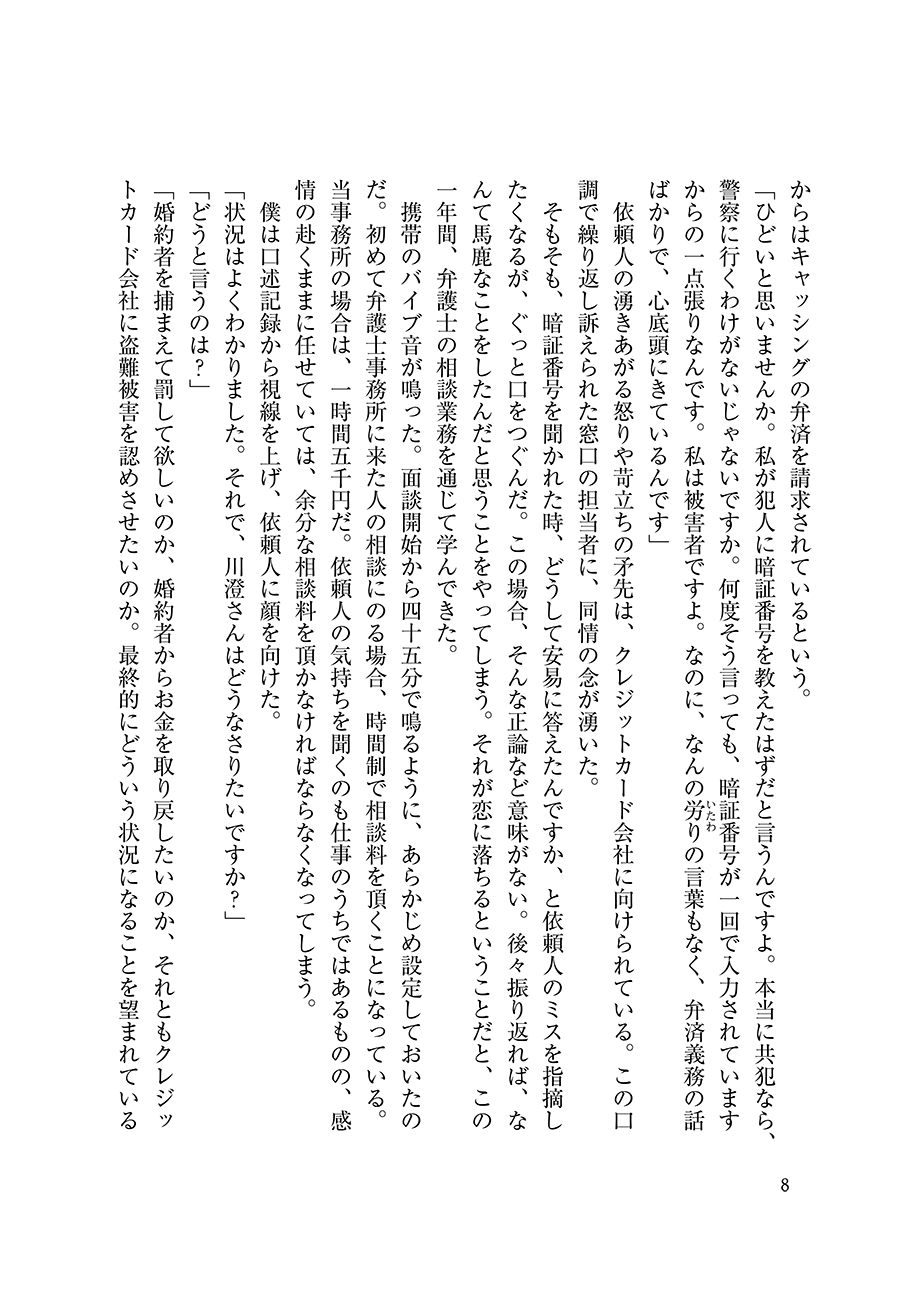 からはキャッシングの弁済を請求されているという。
「ひどいと思いませんか。私が犯人に暗証番号を教えたはずだと言うんですよ。本当に共犯なら、
警察に行くわけがないじゃないですか。何度そう言っても、暗証番号が一回で入力されています
からの一点張りなんです。私は被害者ですよ。なのに、なんの労りの言葉もなく、弁済義務の話
いたわ
ばかりで、心底頭にきているんです」
依頼人の湧きあがる怒りや苛立ちの矛先は、クレジットカード会社に向けられている。この口
調で繰り返し訴えられた窓口の担当者に、同情の念が湧いた。
そもそも、暗証番号を聞かれた時、どうして安易に答えたんですか、と依頼人のミスを指摘し
たくなるが、ぐっと口をつぐんだ。この場合、そんな正論など意味がない。後々振り返れば、な
んて馬鹿なことをしたんだと思うことをやってしまう。それが恋に落ちるということだと、この
一年間、弁護士の相談業務を通じて学んできた。
携帯のバイブ音が鳴った。面談開始から四十五分で鳴るように、あらかじめ設定しておいたの
だ。初めて弁護士事務所に来た人の相談にのる場合、時間制で相談料を頂くことになっている。
当事務所の場合は、一時間五千円だ。依頼人の気持ちを聞くのも仕事のうちではあるものの、感
情の赴くままに任せていては、余分な相談料を頂かなければならなくなってしまう。
僕は口述記録から視線を上げ、依頼人に顔を向けた。
「状況はよくわかりました。それで、川澄さんはどうなさりたいですか？」
「どうと言うのは？」
「婚約者を捕まえて罰して欲しいのか、婚約者からお金を取り戻したいのか、それともクレジッ
トカード会社に盗難被害を認めさせたいのか。最終的にどういう状況になることを望まれている
8